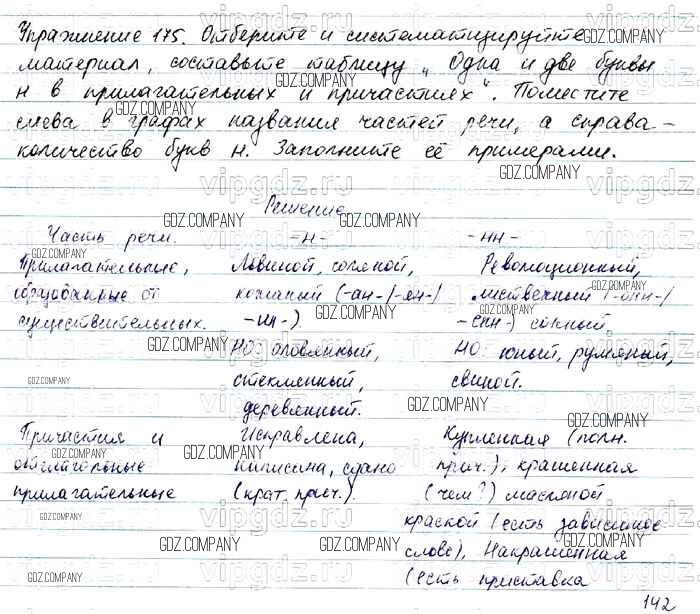 Упражнение 175. Отберите и систематизируйте
материал, составьте таблицу „Одна и две буквы
н в прилагательных и причастиях". Поместите
слева в графах названия частей речи, а справа –
количество букв н. Заполните её примерами.
Решение
Часть речи. -н- -нн-
Прилагательные, Львиной, соляной, Революционный,
образованные от кожаный (-ан-/-ян-/ лиственный (-онн-/
существительных. -ин-). -енн-) сонный,
НО: оловянный, НО: юный, румяный,
стеклянный, свиной.
деревянный.
Причастия и Исправлена, Купленная (полн.
отглагольные написана, сдано прич.), крашенная
прилагательные (крат. прич.). (чем?) масляной
краской (есть зависимое
слово), Накрашенная
(есть приставка
142
GDZ.COMPANY
vipgdz.ru